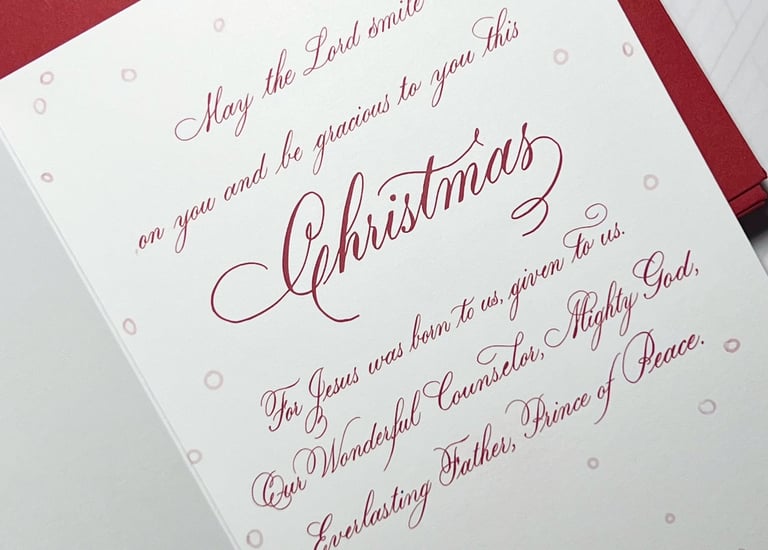 May the Lord smile
on you and be gracious to you this
Christmas
For Jesus was born to us, given to us.
Our Wonderful Counselor, Mighty God,
Everlasting Father, Prince of Peace.